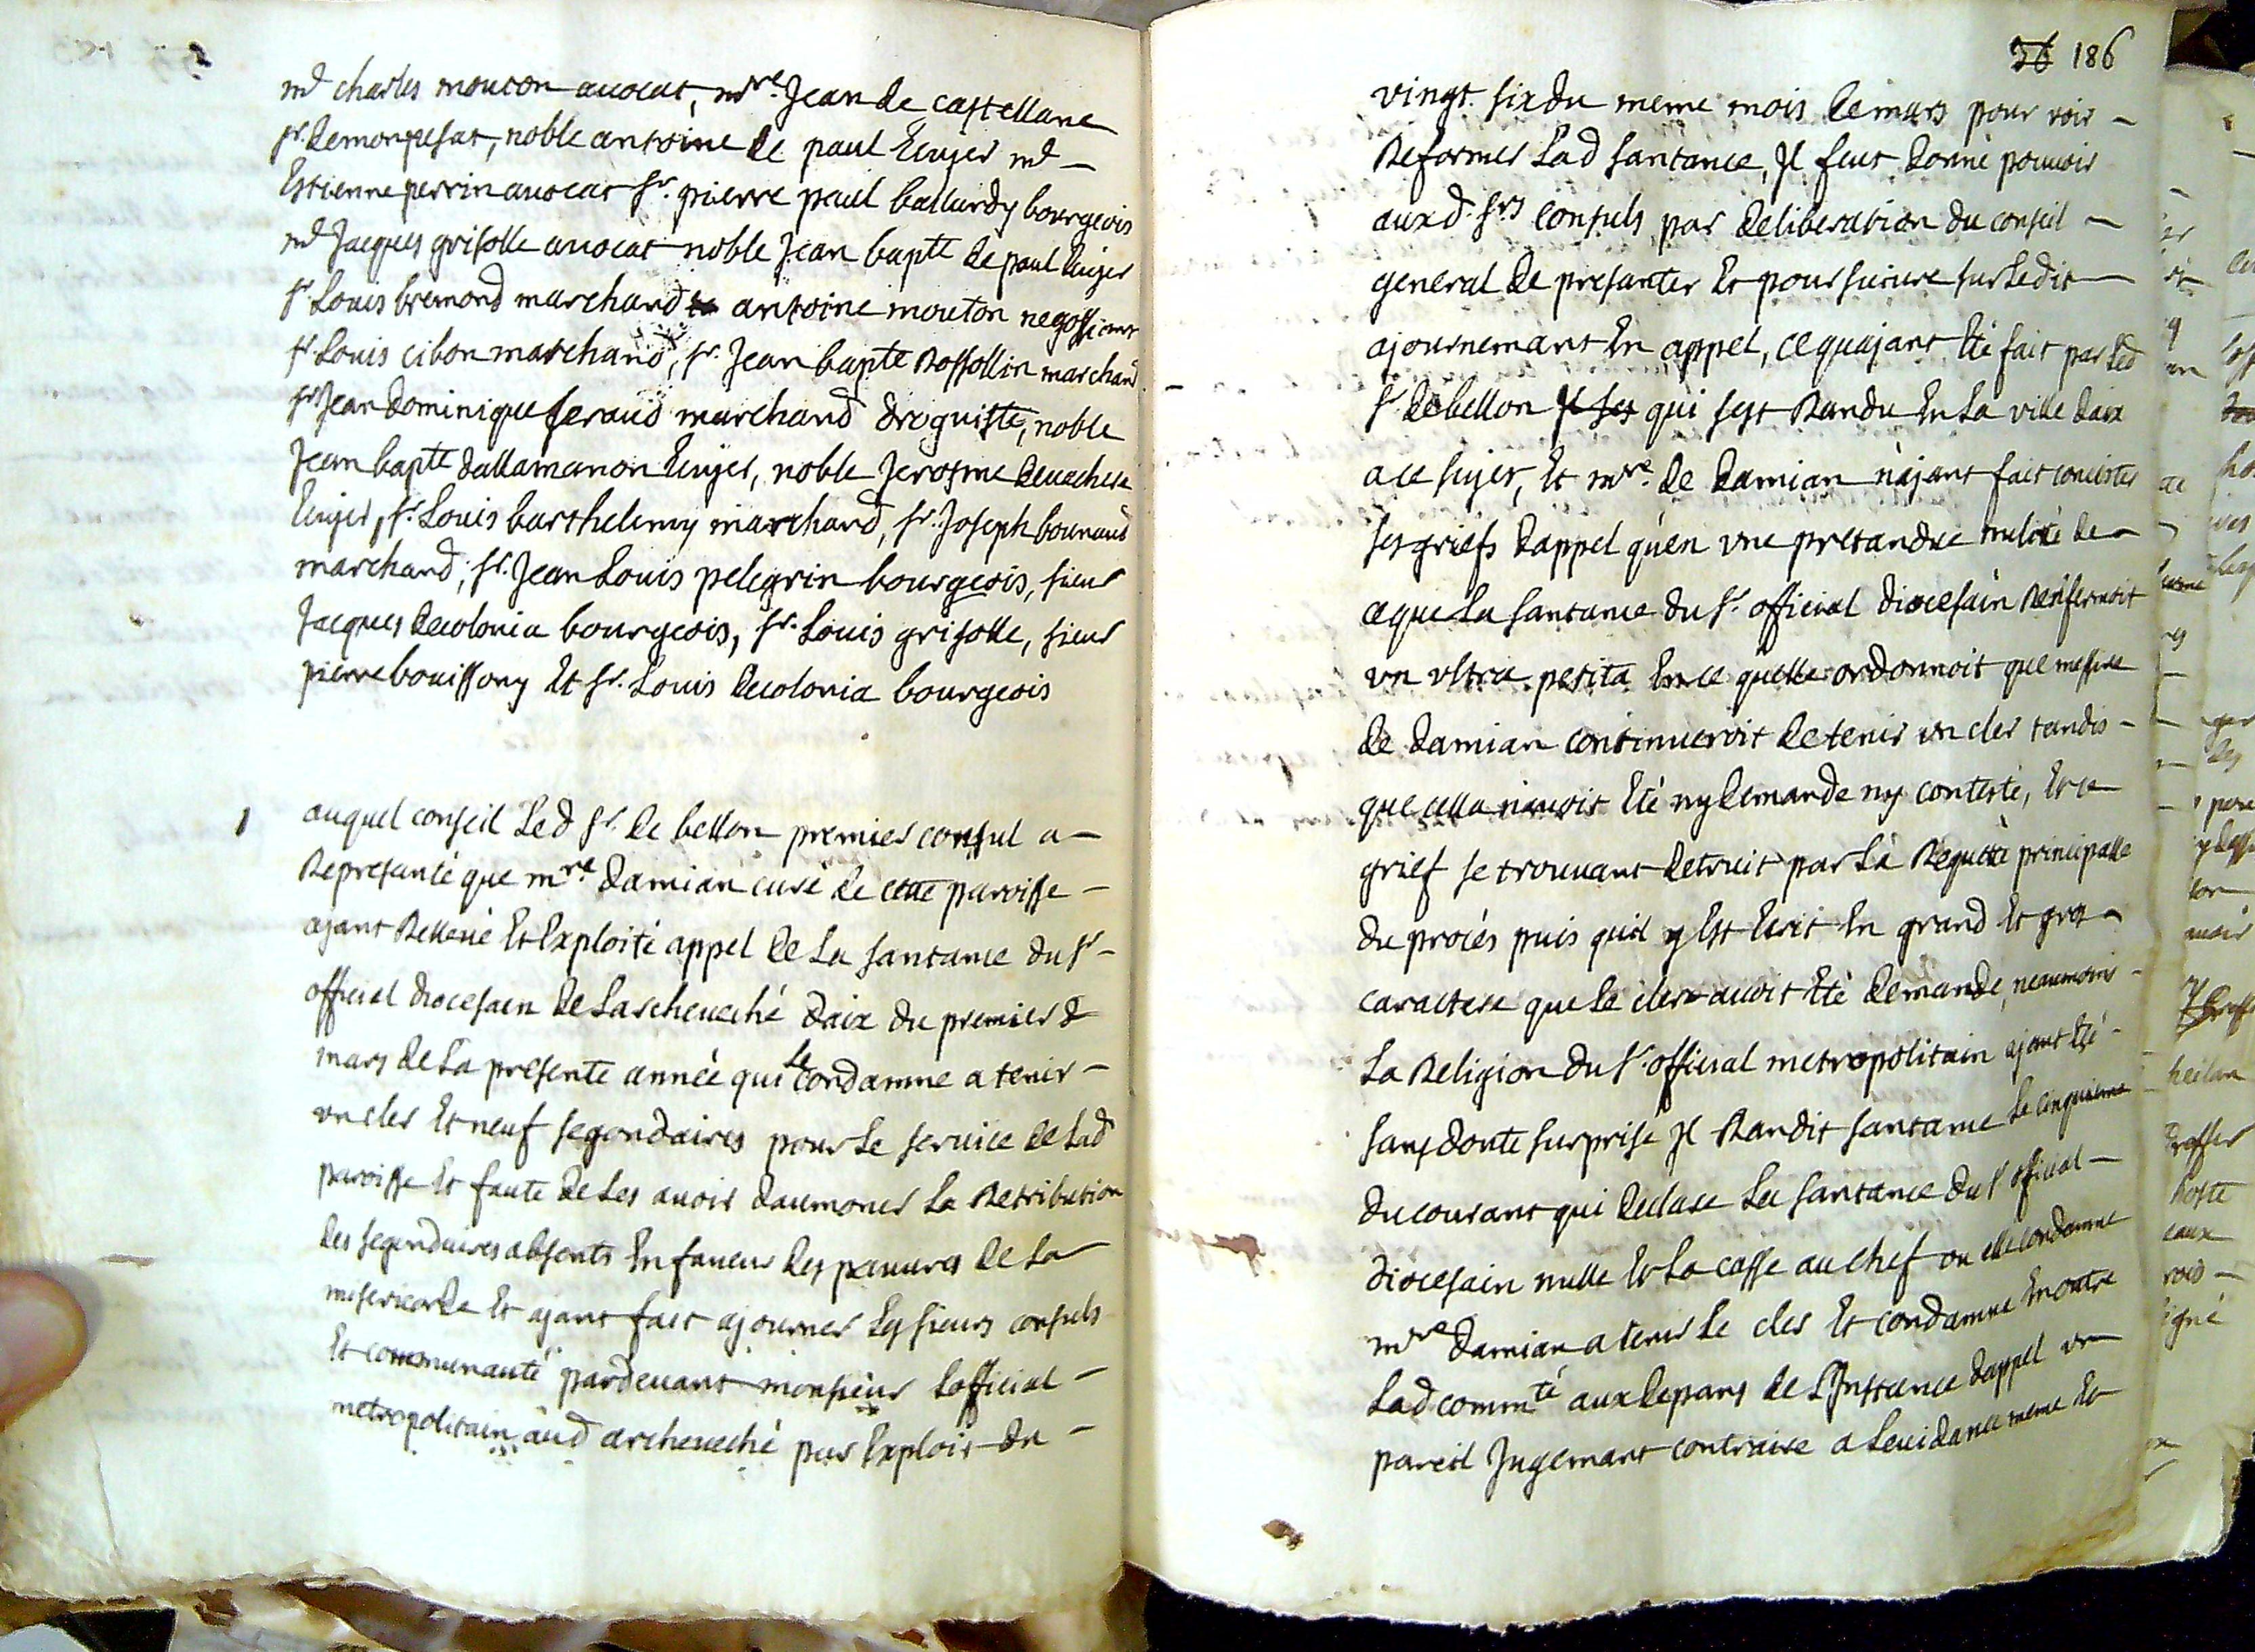 md charles mouton auocat, mre. Jean de castellane
sr. demonpesat, noble antoine de paul Ecuyer md
Estienne perrin auocat sr. pierre paul ballurdy bourgeois
md Jacques grisolle auocat noble Jean bapte de paul Ecuyer
sr Louis bremond marchand antoine mouton negossiant
sr. Louis cibon marchand, sr. Jean bapte Rossollin marchand
sr Jean dominique feraud marchand droguiste, noble
Jean bapte dallamanon Ecuyer, noble Jerosme deuachere
Ecuyer, sr. Louis barthelemy marchand, sr. Joseph bounaud
marchand, sr. Jean Louis pelegrin bourgeois, sieur
Jacques decolonia bourgeois, sr. Louis grisolle, sieur
pierre bouissony Et sr. Louis decolonia bourgeois
1 auquel conseil Led sr. de bellon premier consul a
Represanté que mre. damian curé de cette paroisse
ajant Relleué Et Exploité appel de La santance du sr
official diocesain de Larcheueché daix du premier
mars de La presente année qui Le condamne a tenir
un cler Et neuf segondaires pour Le seruice de Lad
paroisse Et faute de Les auoir daumoner La Retribution
des segondaires absents En faueur des pauures de La
misericorde Et ajant fait ajourner Les sieurs consuls
Et communauté pardeuant monsieur Lofficial
metropolitain aud archeueché par Exploit du
36 186
vingt six du meme mois de mars pour voir
Reformer Lad santance, Jl feut donné pouuoir
auxd. srs consuls par deliberation du conseil
general de presanter Et poursuiure sur Ledit
ajournemant En appel, ce quajant Eté fait par Led
sr de bellon qui sest Randu En La ville daix
a ce sujet, Et mre. de damian n'ajant fait concister
ses griefs dappel qu'en vne pretandue nulité de
ce que La santance du sr. official diocesain Renfermoit
vn vltra petita En ce quelle ordonnoit que messire
de damian continueroit de tenir vn cler tandis
que cella n'auoit Eté ny demandé ny contesté, Et ce
grief se trouuant detruit par La Requette principalle
du procés puis quil y Est Ecrit En grand Et gros
caractere que Le cler auoit Eté demandé, neaumoins
La Religion du sr. official metropolitain ajant Eté
sans doute surprise Jl Randit santance Le cinquieme
du courant qui declare La santance du sr official
diocesain nulle Et La casse au chef ou elle condamne
mre damian a tenir Le cler Et condamne En outre
Lad commté aux depans de L'Instance dappel vn
pareil Jugemant contraire a Leuidance meme Et